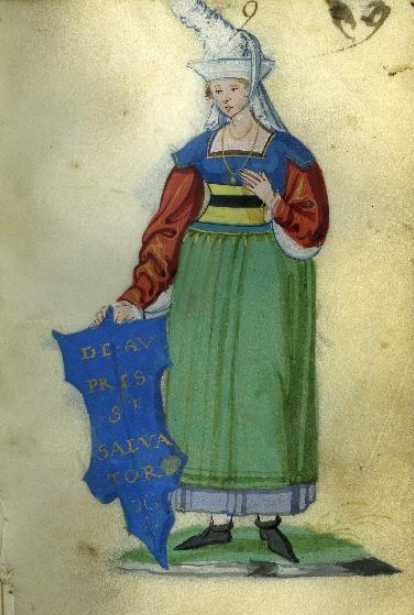 9
DE·AV
PRES·
ST
SALVA
TOR